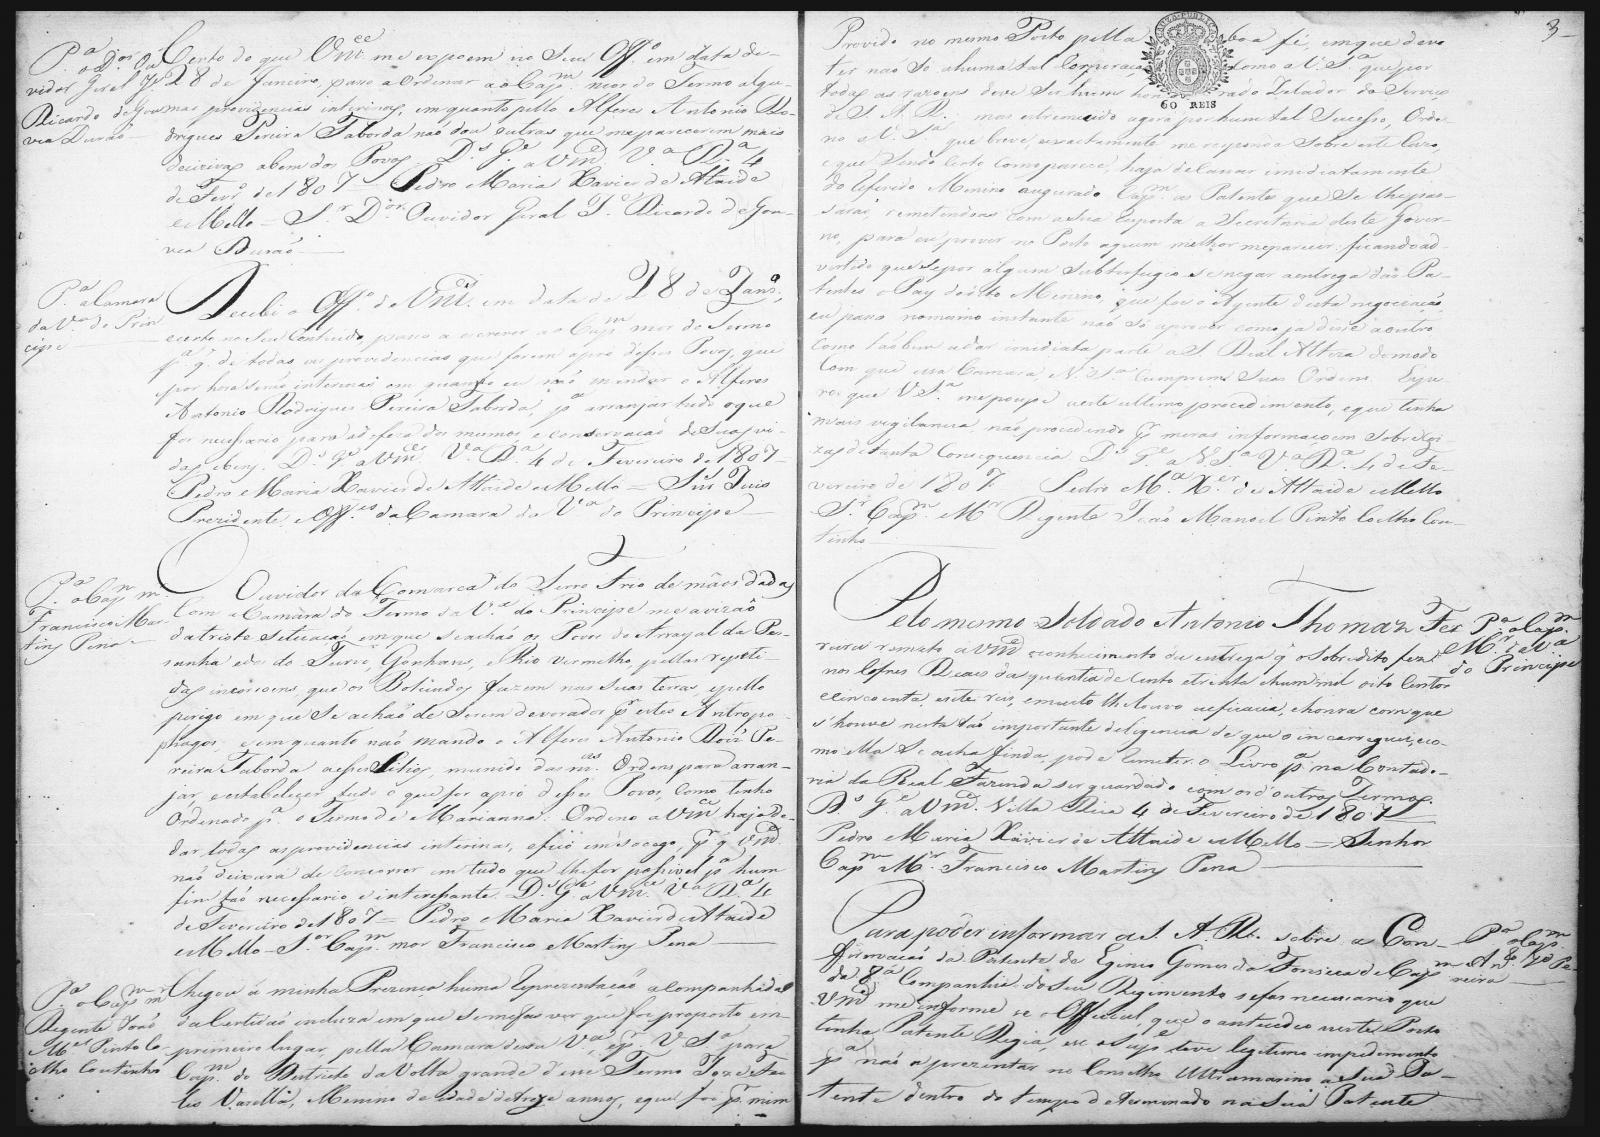 P.ª o D.or Ou
vidor Geral J.e
Ricardo de Gou
vea Durão
Certo do que Vm.ce me expoem no seu Off.º em data de
28 de Janeiro, passo a Ordenar ao Cap.m mor do Termo algu-
mas providencias interinas, em quanto pello Alferes Antonio Ro-
drigues Pereira Taborda não dou outras que me parecerem mais
decizivas abem dos Povos D.s G.e a Vm.ce V.ª R.ª 4
de Fevr.º de 1807 = Pedro Maria Xavier de Ataide
e Mello = S.r D.or Ouvidor Geral Ricardo de Gou-
vea Durão
P.ª a Camara
da V.ª do Prin
cipe
Recebi o Off.º de Vm.ces em data de 28 de Janr.º,
e certo no seu Contheudo, passo a escrever ao Cap.m mor do Termo
p.ª q. de todas as providencias que forem apro desses Povos, que
por hora serão interinas em quanto eu não mandar o Alferes
Antonio Rodrigues Pereira Taborda, p.ª arranjar tudo o que
for necessario para a defeza dos mesmos, e conservação de suas vi-
das e bens. D.s G.e a Vm.ces V.ª R.ª 4 de Fevereiro de 1807
Pedro Maria Xavier de Attaide e Mello = Snr.s Juis
Prezidente, e Off.es da Camara da V.ª do Principe
P.ª o Cap.m m.
Francisco Mar
tins Pena
O Ouvidor da Comarca do Serro Frio de mãos dadas
Com a Camara do Termo da V.ª do Principe me avizão
da triste situação em que se achão os Povos do Arrayal da Pe-
sanha e do Turvo, Gonhans, e Rio vermelho, pellas repeti-
das incursoens, que os Boticudos fazem nas suas terras, e pello
perigo em que se achão de serem devorados p.r estes Antropo-
phagos, e em quanto não mando o Alferes Antonio Roiz Pe-
reira Taborda a esses Sitios, munido das m.as Ordens para arran-
jar, e estabelecer tudo o que for apro desses Povos, como tenho
Ordenado p.ª o Termo de Marianna: Ordeno a Vm.ce haja de
dar todas as providencias interinas, e fico em socego, p.r q. Vm.ce
não deixará de concorrer em tudo que lhe for possivel p.ª hum
fim tão necessario e interessante. D.s G.e a Vm.ce V.ª R.ª 4
de Fevereiro de 1807 = Pedro Maria Xavier de Ataide
e Mello = S.or Cap.m mor Francisco Martins Pena
P.ª o Cap.m m.r
Regente João
M.el Pinto Co-
elho Coutinho
Chegou á minha Prezença huma Reprezentação acompanhada
da Certidão incluza em que se me fas ver que foi proposto em
primeiro lugar pella Camara dessa V.ª, e p.r V S.ª para
Cap.m do Destricto da Volta grande desse Termo Joze de Fa-
Varella, Menino de idade de treze annos, e que foi p.r mim
3
60 REIS
Provido no mesmo Posto pella boa fé, em que devo
ter não só a huma tal Corporação como a V. S.ª que por
todas as razoens deve ser hum honrado Zelador do Serviço
de S. A. R., mas estremecido agora por hum tal Sucesso, Orde-
no a V S.ª que breve, e exactamente me responda sobre este cazo,
e que sendo Certo Como parece, haja de Cassar immediatamente
do referido Menino augurado Cap.m as Patentes que se lhe pas-
sarão, remetendoas com a sua resposta a Secretaria deste Gover-
no, para eu prover no Posto a quem melhor me parecer: ficando ad-
virtido que se por algum subterfugio se negar a entrega das Pa-
tentes o Pay do dito Menino, que foi o Agente desta negociação,
eu passo no mesmo instante não só aprover como ja disse a outro
como tãobem a dar immediata parte a S. Real Alteza do modo
Com que essa Camara, e V. S.ª Cumprem suas Ordens. Espe-
ro que V S.ª me poupe neste ultimo procedimento, e que tenha
mais vigilancia, não procedendo p.r meras informaçoens sobre Coi-
zas de tanta Consequencia D.s G.e a V. S.ª V.ª R.ª 4 de Fe-
vereiro de 1807 Pedro M.ª X.er de Attaide e Mello
S.r Cap.m M.r Regente João Manoel Pinto Coelho Cou-
tinho
P.ª o Cap.m
M.r da V.ª
do Principe
Pelo mesmo Soldado Antonio Thomaz Fer
reira remeto a Vm.ce o conhecimento da entrega q. o Sobredito fez
nos Cofres Reaes da quantia de Cento e trinta e hum mil oito Centos
e Cincoenta e sete reis, e muito lhe louvo a eficacia, e honra com que
s'houve nesta tão importante deligencia de que o incarreguei, e co-
mo ella se acha finda, pode remeter o Livro p.ª na Contado-
ria da Real Fazenda ser guardado com os d'outros Termos.
D.s G.e a Vm.ce Villa Rica 4 de Fevereiro de 1807
Pedro Maria Xavier de Attaide e Mello = Senhor
Cap.m M.r Francisco Martins Pena
P.ª o Cap.m
Ant.º Pe-
reira
Para poder informar a S. A. R. sobre a Con-
firmação da Patente de Eginio Gomes da Fonseca de Cap.m
da 8.ª Companhia do seu Regimento se fas necessario que
Vm.ce me informe se o Official que o antecedeo neste Posto
tinha Patente Regia, e se o Sup.e teve legitimo impedimento
p.ª não aprezentar no Conselho Ultramarino a sua Pa-
tente dentro do tempo determinado na sua Patente